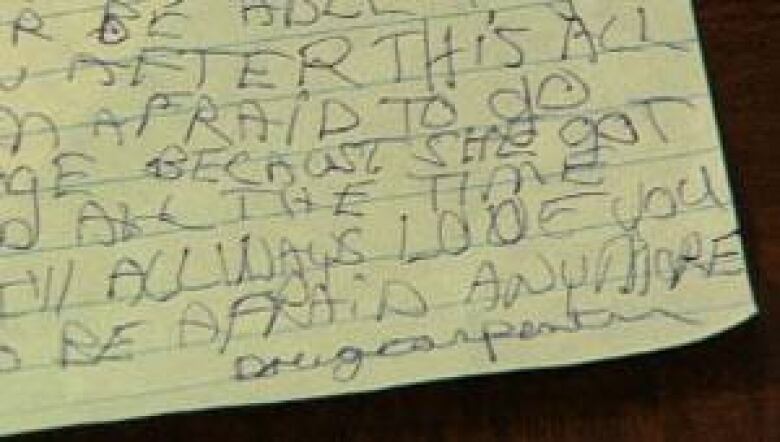 R BE ABLE
AFTER THIS ALL
AFRAID TO gO
gE BECAUSE SHE gOT
ALL THE TIME
I'll ALLWAYS LOVE YOU
BE AFRAID ANYMORE
Doug carpenter